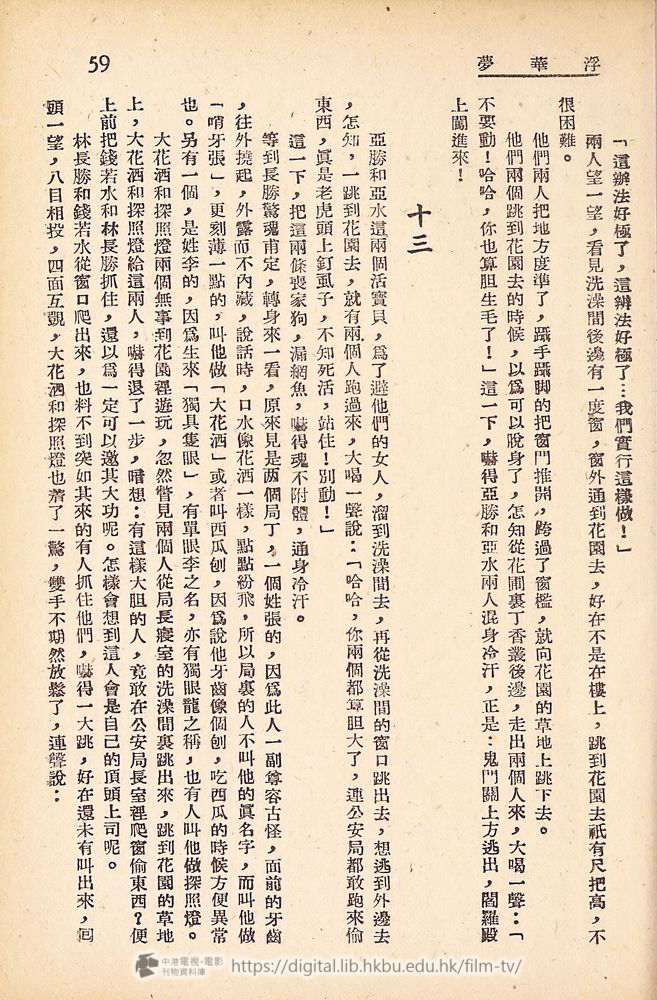 浮華夢
59
「這辦法好極了，這辦法好極了…我們實行這樣做！」
兩人望一望，看見洗澡間後邊有一度窗，窗外通到花園去，好在不是在樓上，跳到花園去祇有尺把高，不
很困難。
他們兩人把地方度準了，躡手躡脚的把窗門推開，跨過了窗檻，就向花園的草地上跳下去。
他們兩個跳到花園去的時候，以爲可以脫身了，怎知從花圃裏丁香叢後邊，走出兩個人來，大喝一聲：「
不要動！哈哈，你也算胆生毛了！」這一下，嚇得亞勝和亞水兩人混身冷汗，正是：鬼門關上方逃出，閻羅殿
上闖進來！
十三
亞勝和亞水這兩個活寶貝，爲了避他們的女人，溜到洗澡間去，再從洗澡間的窗口跳出去，想逃到外邊去
，怎知，一跳到花園去，就有兩個人跑過來，大喝一聲說：「哈哈，你兩個都算胆大了，連公安局都敢跑來偷
東西，眞是老虎頭上釘虱子，不知死活，站住！別動！」
這一下，把這兩條喪家狗，漏網魚，嚇得魂不附體，通身冷汗。
等到長勝驚魂甫定，轉身來一看，原來見是两個局丁，一個姓張的，因爲此人一副尊容古怪，面前的牙齒
，往外撓起，外露而不內藏，說話時，口水像花洒一樣，點點紛飛，所以局裏的人不叫他的眞名字，而叫他做
「哨牙張」，更刻薄一點的，叫他做「大花洒」或者叫西瓜刨，因爲說他牙齒像個刨，吃西瓜的時候方便異常
也。另有一個，是姓李的，因爲生來「獨具隻眼」，有單眼李之名，亦有獨眼龍之稱，也有人叫他做探照燈。
大花洒和探照燈兩個無事到花園裡遊玩，忽然瞥見兩個人從局長寢室的洗澡間裏跳出來，跳到花園的草地
上，大花洒和探照燈給這兩人，嚇得退了一步，暗想：有這樣大胆的人，竟敢在公安局長室裡爬窗偷東西？便
上前把錢若水和林長勝抓住，還以爲一定可以邀其大功呢。怎樣會想到這人會是自己的頂頭上司呢。
林長勝和錢若水從窗口爬出來，也料不到突如其來的有人抓住他們，嚇得一大跳，好在還未有叫出來，回
頭一望，八目相投，四面互覷，大花洒和探照燈也着了一驚，雙手不期然放鬆了，連聲說：
中港電視·電影
刊物資料庫
https://digital.lib.hkbu.edu.hk/film-tv/